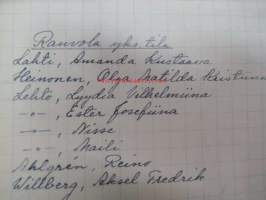 Rauvola yks. tila
Lahti, Amanda Kustaava
Heinonen, Olga Matilda Kristiina
Lehto, Lyydia Vilhelmiina
-"-, Ester Josefiina
-"-, Nisse
-"-, Maili
Ahlgrén, Reino
Willberg, Aksel Fredrik